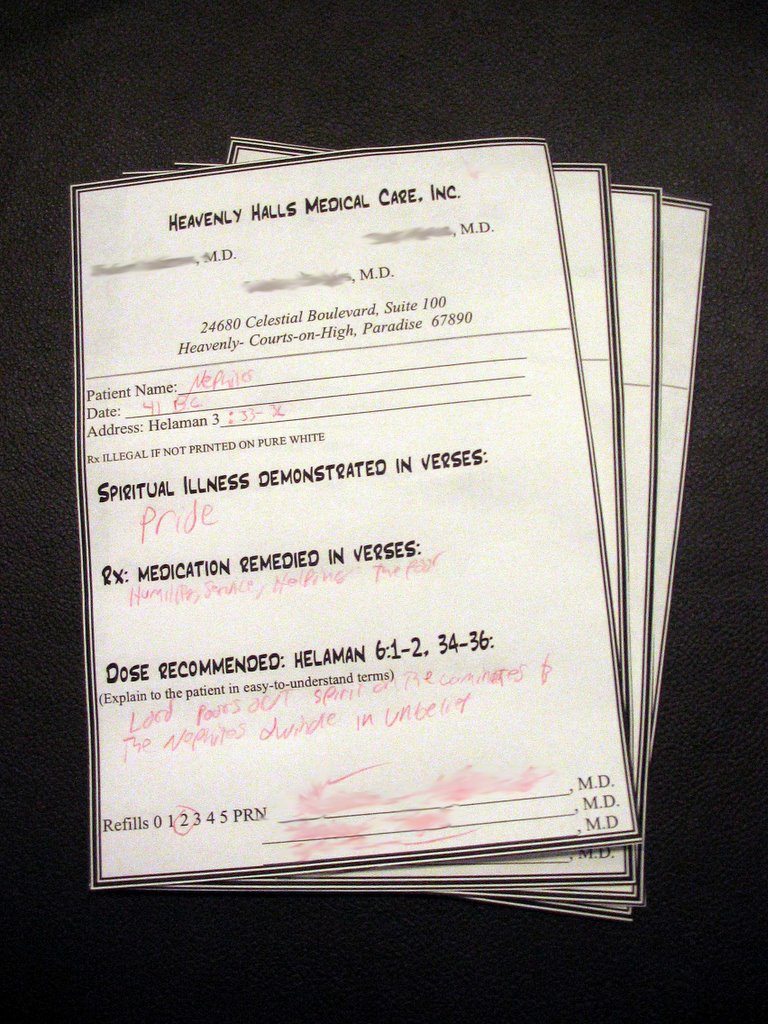 HEAVENLY HALLS MEDICAL CARE, INC.
, M.D.
, M.D.
, M.D.
24680 Celestial Boulevard, Suite 100
Heavenly- Courts-on-High, Paradise 67890
Patient Name: Nephites
Date: 41 B.C.
Address: Helaman 3 :33-36
Rx ILLEGAL IF NOT PRINTED ON PURE WHITE
SPIRITUAL ILLNESS DEMONSTRATED IN VERSES:
Pride
RX: MEDICATION REMEDIED IN VERSES:
Humility, Service, Helping The Poor
DOSE RECOMMENDED: HELAMAN 6:1-2, 34-36:
(Explain to the patient in easy-to-understand terms)
Lord Pours out spirit on The Laminates &
The Nephites dwindle in unbelief
, M.D.
, M.D.
Refills 0 1 2 3 4 5 PRN
, M.D
, M.D.